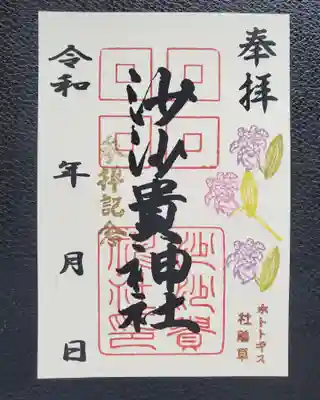 奉拝
沙沙貴神社
参拝記念
令和 年 月 日
ホトトギス
杜鵑草
沙沙貴
神社印